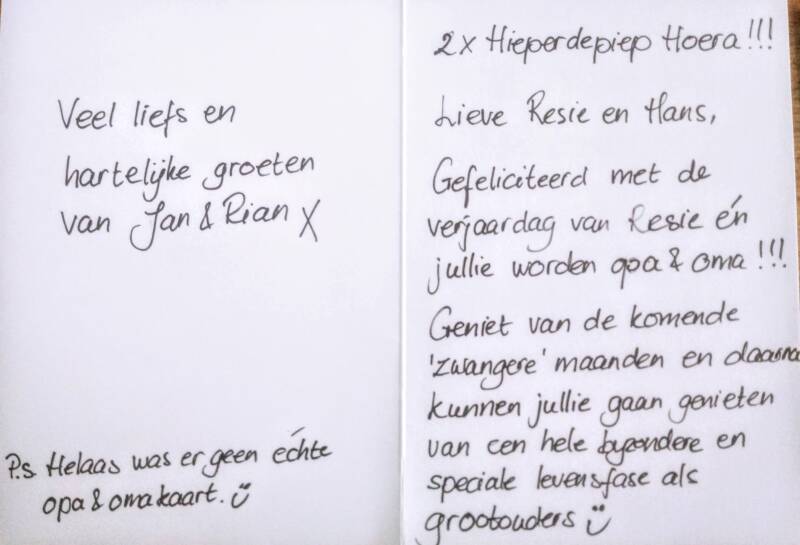 Veel liefs en
hartelijke groeten
van Jan & Rian X
P.s. Helaas was er geen échte
opa & oma kaart. ü
2x Hieperdepiep Hoera!!!
Lieve Resie en Hans,
Gefeliciteerd met de
verjaardag van Resie én
jullie worden opa & oma!!!
Geniet van de komende
'zwangere' maanden en daarna
kunnen jullie gaan genieten
van een hele byzondere en
speciale levensfase als
grootouders ü